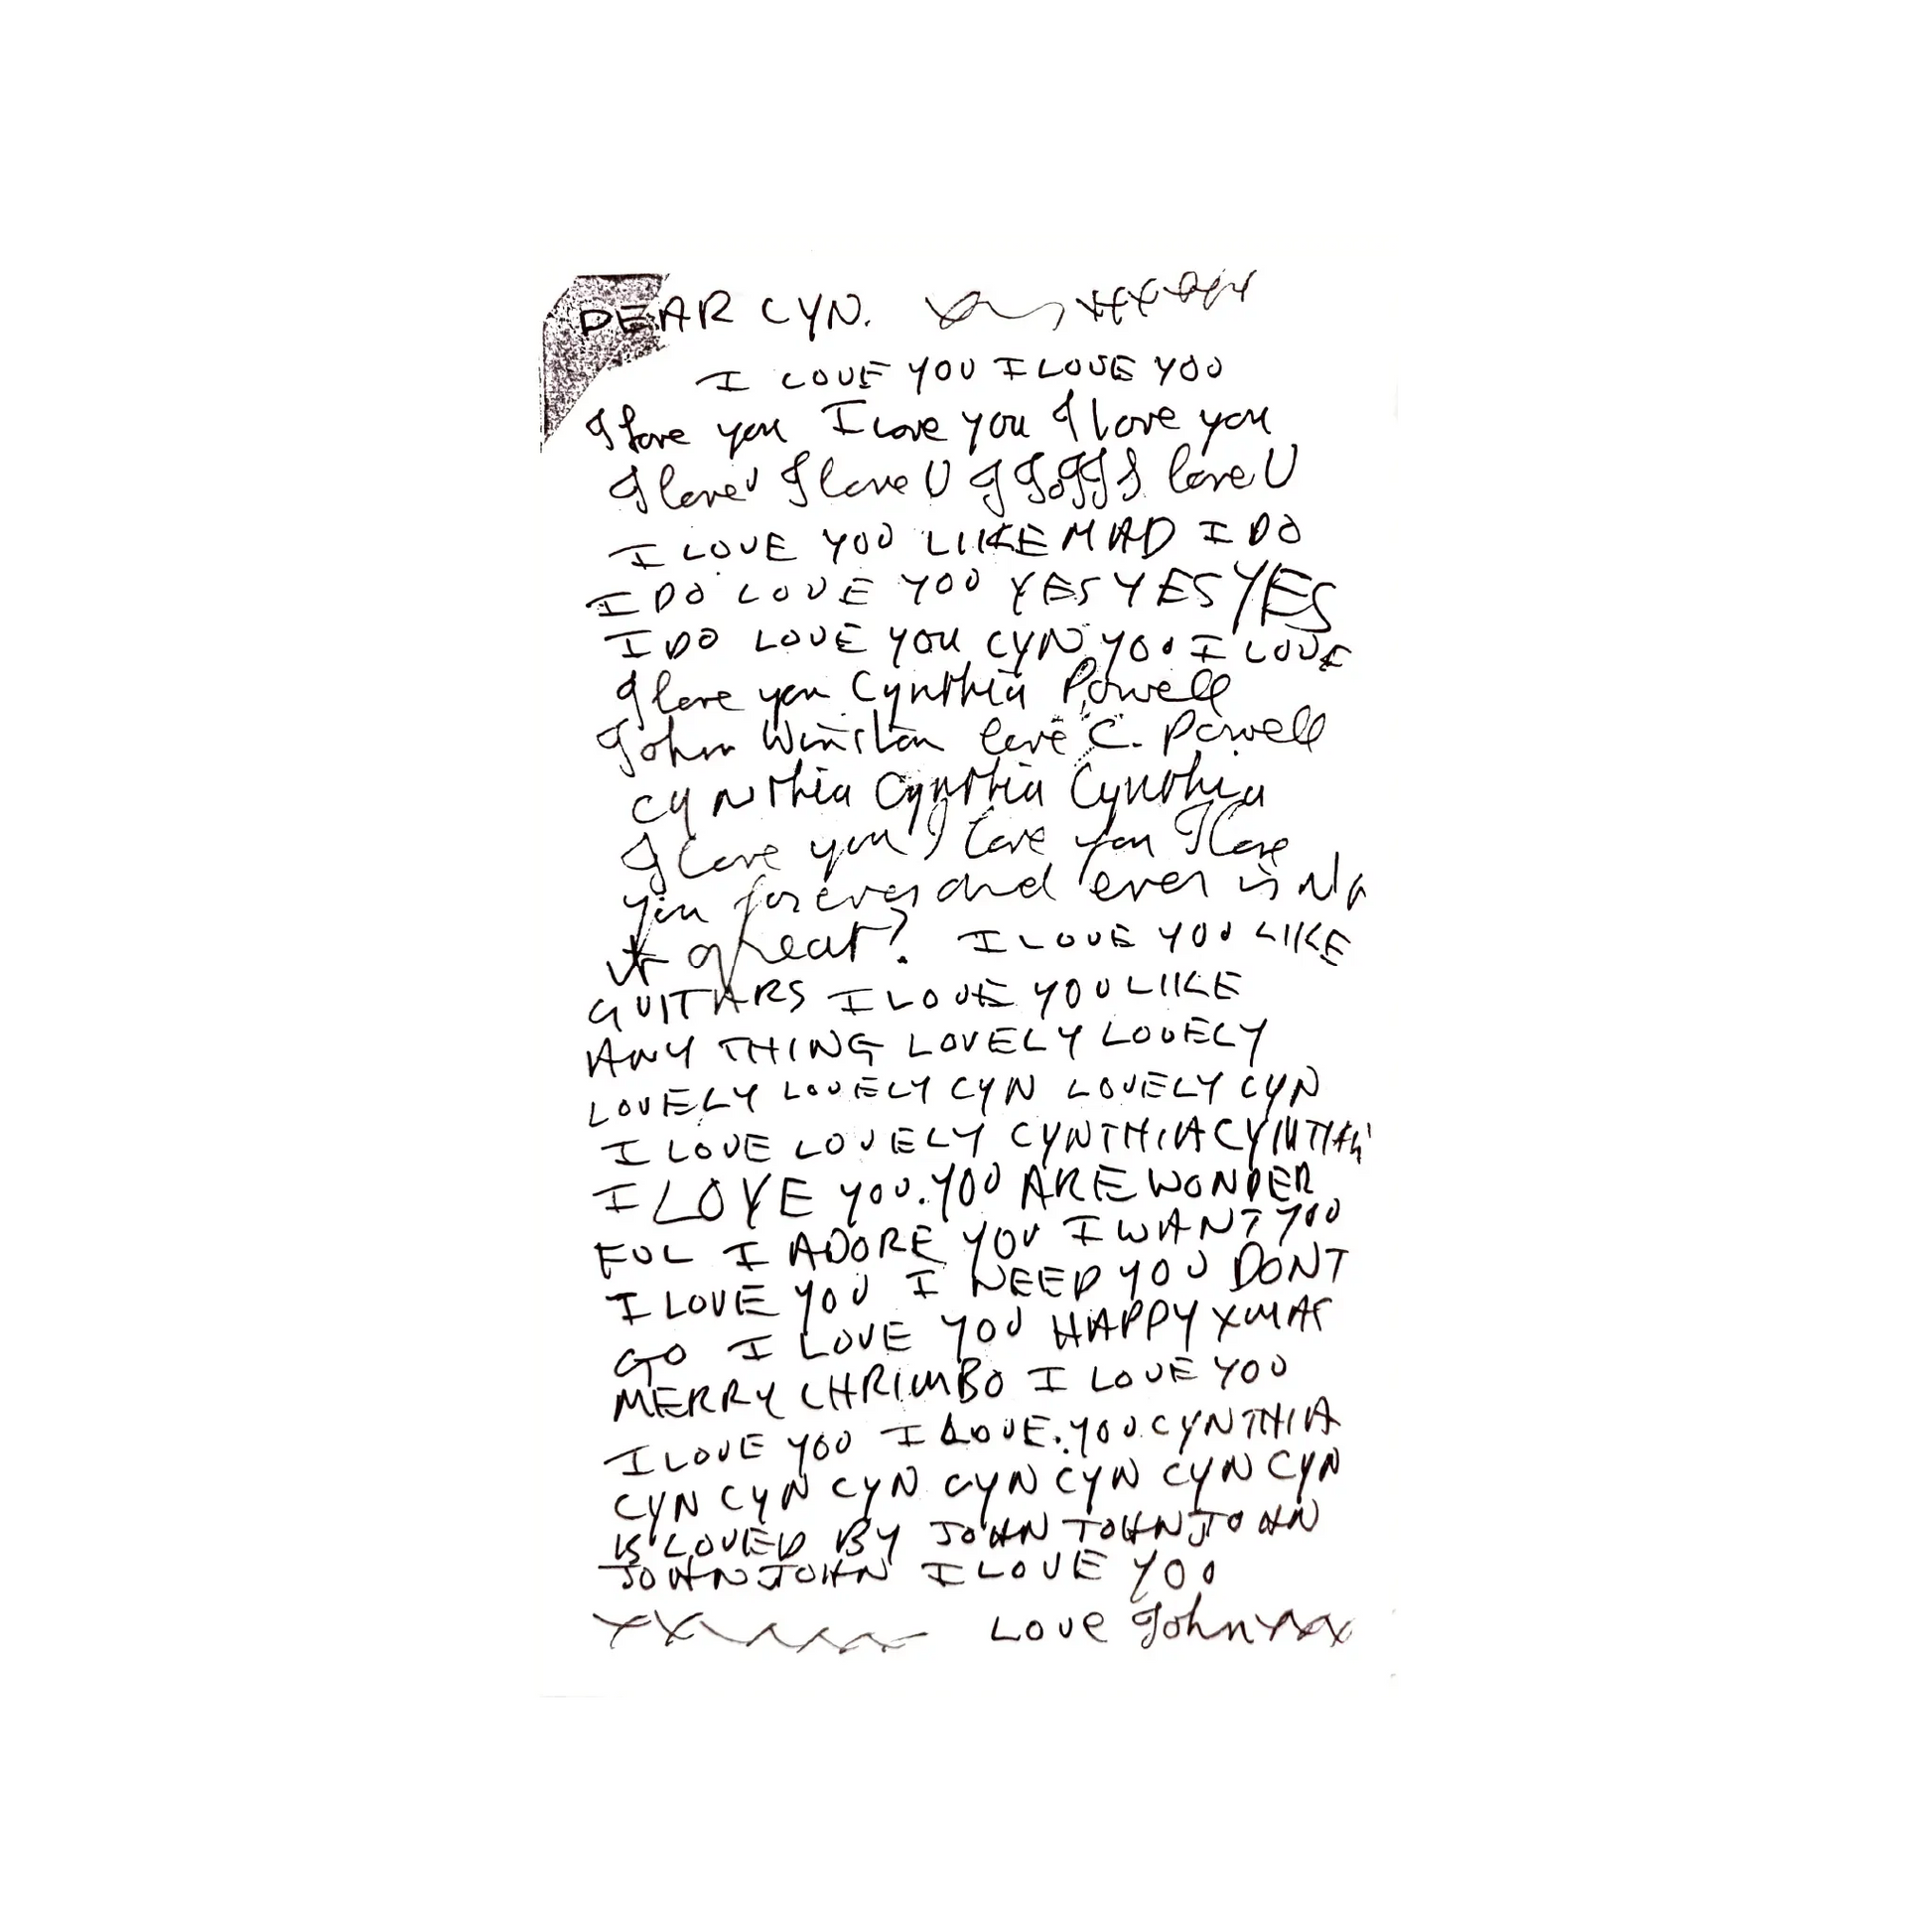 DEAR CYN.
I LOVE YOU I LOVE YOU
I love you I love you I love you
I love U I love U I I I I I I love U
I LOVE YOU LIKE MAD I DO
I DO LOVE YOU YES YES YES
I DO LOVE YOU CYN YOU I LOVE
I love you Cynthia Powell
John Winston love C. Powell
Cynthia Cynthia Cynthia
I love you I love you I love
you forever and ever is N
it great? I LOVE YOU LIKE
GUITARS I LOVE YOU LIKE
ANY THING LOVELY LOVELY
LOVELY LOVELY CYN LOVELY CYN
I LOVE LOVELY CYNTHIA CYNTHIA
I LOVE YOU. YOU ARE WONDER
FUL I ADORE YOU I WANT YOU
I LOVE YOU I NEED YOU DONT
GO I LOVE YOU HAPPY XMAS
MERRY CHRIMBO I LOVE YOU
I LOVE YOU I LOVE. YOU CYNTHIA
CYN CYN CYN CYN CYN CYN CYN
IS LOVED BY JOHN JOHN JOHN
JOHN JOHN I LOVE YOU
XX LOVE John xxx